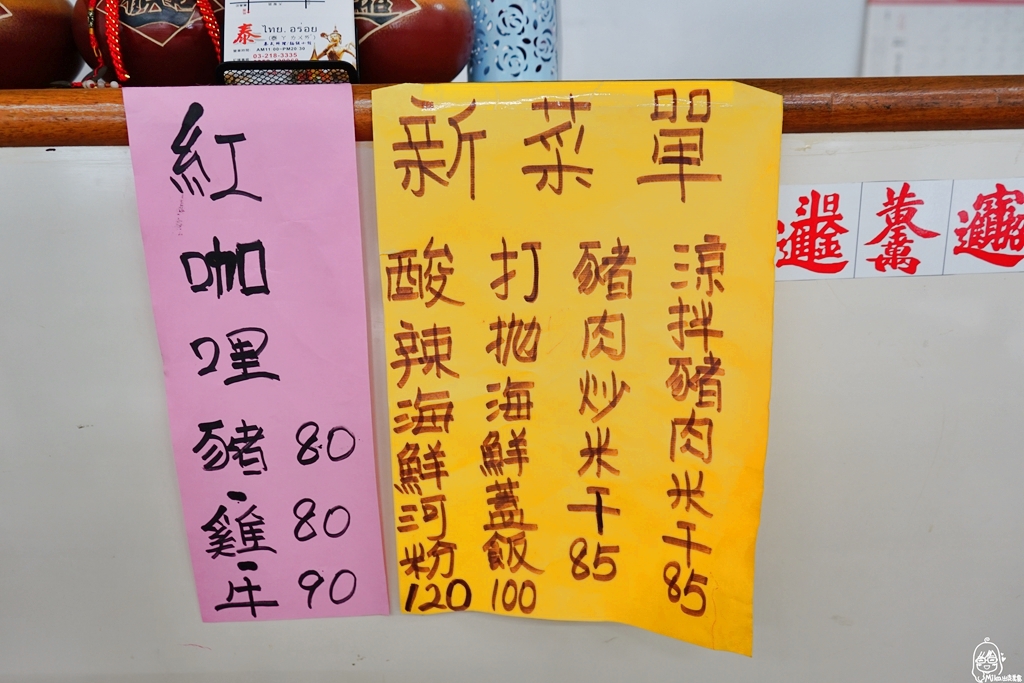 泰 ไทย. อร่อย
AM11:00~PM20:30
03-218-3335
紅咖哩
豬 80
雞 80
牛 90
新菜單
涼拌豬肉米干 85
豬肉炒米干 85
打拋海鮮蓋飯 100
酸辣海鮮河粉 120